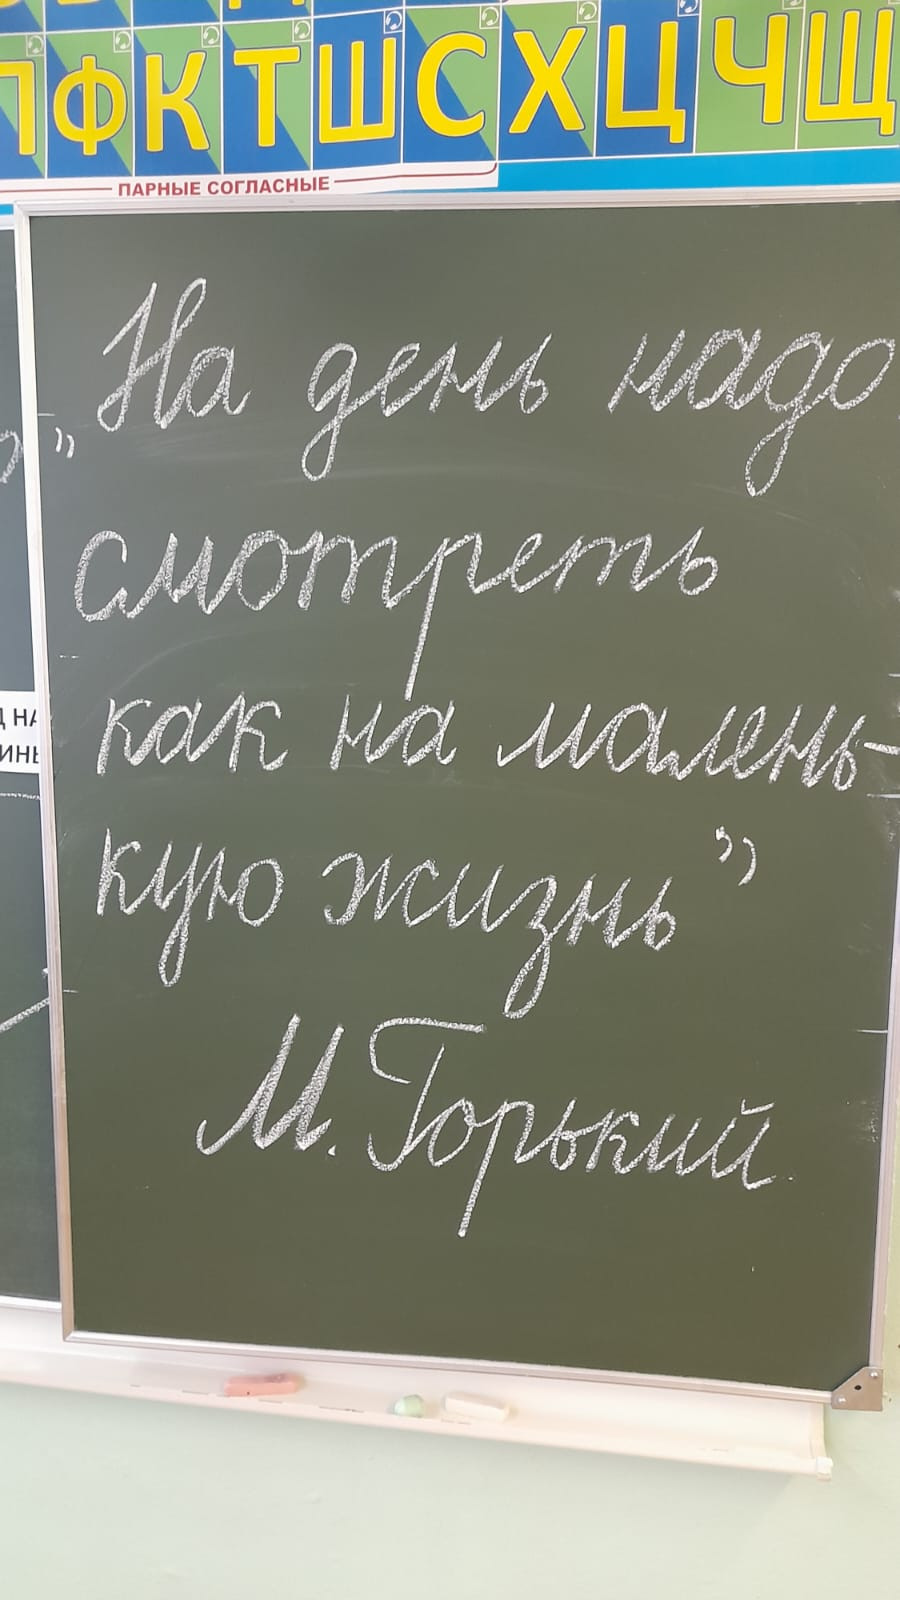 П Ф К Т Ш С Х Ц Ч Щ
ПАРНЫЕ СОГЛАСНЫЕ
„На день надо
смотреть
как на малень-
кую жизнь”
М. Горький.
НА